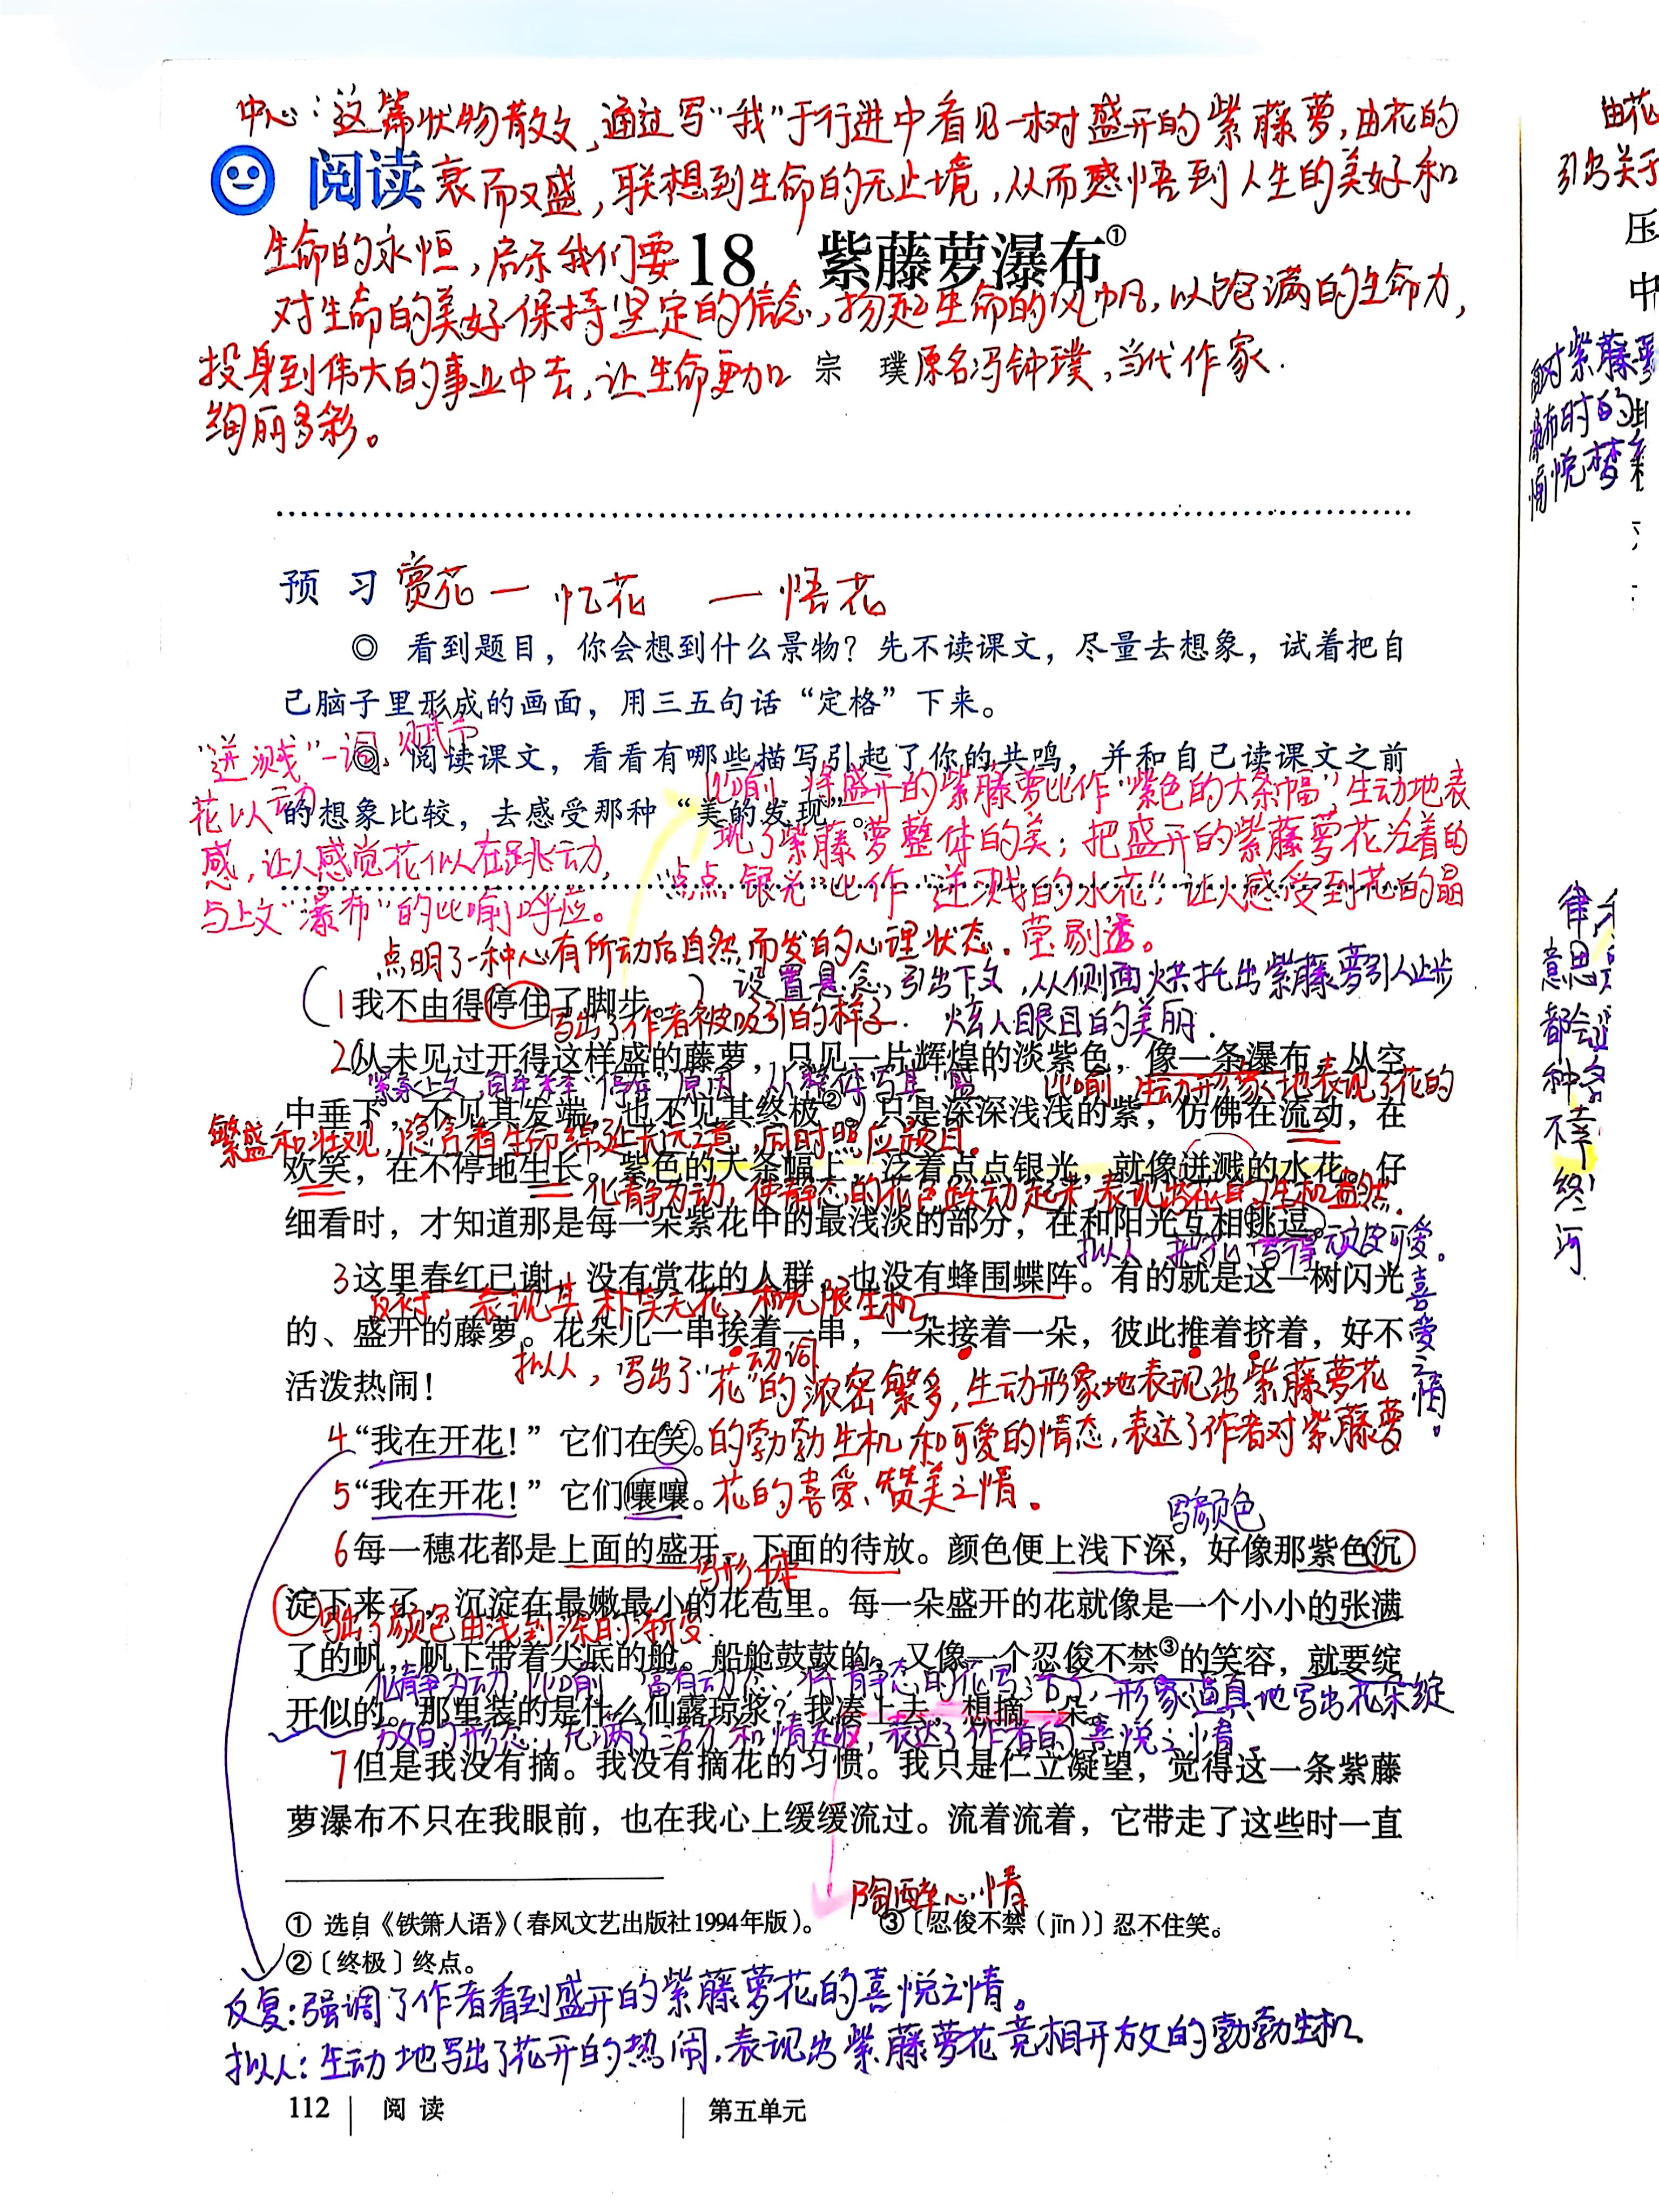 中心：这篇状物散文，通过写“我”于行进中看见一树盛开的紫藤萝，由花的
阅读 衰而又盛，联想到生命的无止境，从而感悟到人生的美好和
生命的永恒，启示我们要
18 紫藤萝瀑布①
对生命的美好保持坚定的信念，扬起生命的风帆，以饱满的生命力，
投身到伟大的事业中去，让生命更加
宗 璞 原名冯钟璞，当代作家．
绚丽多彩。
预 习 赏花 — 忆花 — 悟花
◎ 看到题目，你会想到什么景物？先不读课文，尽量去想象，试着把自
己脑子里形成的画面，用三五句话“定格”下来。
“迸溅”一词，赋予
◎ 阅读课文，看看有哪些描写引起了你的共鸣，并和自己读课文之前
花以动
的想象比较，去感受那种“美的发现”。
感，让人感觉花似在跳动，
与上文“瀑布”的比喻呼应。
比喻 将盛开的紫藤萝比作“紫色的大条幅”，生动地表
现了紫藤萝整体的美；把盛开的紫藤萝花泛着的
“点点银光”比作“迸溅的水花”，让人感受到花的晶
莹剔透。
点明了一种心有所动后自然而发的心理状态．
设置悬念，引出下文，从侧面烘托出紫藤萝引人止步
1我不由得停住了脚步。
写出了作者被吸引的样子．
炫人眼目的美丽．
2从未见过开得这样盛的藤萝，只见一片辉煌的淡紫色，像一条瀑布，从空
紧承上文，回答未末“停住”原因，从整体写其“盛”
比喻 生动形象地表现了花的
中垂下，不见其发端，也不见其终极②。只是深深浅浅的紫，仿佛在流动，在
繁盛和壮观，隐含着生命绵延长远之意，同时照应题目．
欢笑，在不停地生长。紫色的大条幅上，泛着点点银光，就像迸溅的水花。仔
化静为动，使静态的花色跃动起来，表现出花的生机盎然．
细看时，才知道那是每一朵紫花中的最浅淡的部分，在和阳光互相挑逗。
拟人，把花写得顽皮可爱．
喜爱之情。
3这里春红已谢，没有赏花的人群，也没有蜂围蝶阵。有的就是这一树闪光
反衬，表现其朴实无花，和无限生机
的、盛开的藤萝。花朵儿一串挨着一串，一朵接着一朵，彼此推着挤着，好不
动词
活泼热闹！
拟人，写出了“花”的浓密繁多，生动形象地表现出紫藤萝花
4“我在开花！”它们在笑。
的勃勃生机和可爱的情态，表达了作者对紫藤萝
5“我在开花！”它们嚷嚷。
花的喜爱、赞美之情．
写颜色
6每一穗花都是上面的盛开、下面的待放。颜色便上浅下深，好像那紫色沉
写形体
淀下来了，沉淀在最嫩最小的花苞里。每一朵盛开的花就像是一个小小的张满
写出了颜色由浅到深的渐变
了的帆，帆下带着尖底的舱。船舱鼓鼓的，又像一个忍俊不禁③的笑容，就要绽
化静为动，比喻 富有动态．将静态的花写活了，形象逼真地写出花朵绽
开似的。那里装的是什么仙露琼浆？我凑上去，想摘一朵。
放的形态，充满了活力和情趣，表达了作者的喜悦之情．
7但是我没有摘。我没有摘花的习惯。我只是伫立凝望，觉得这一条紫藤
萝瀑布不只在我眼前，也在我心上缓缓流过。流着流着，它带走了这些时一直
陶醉心情
① 选自《铁箫人语》（春风文艺出版社1994年版）。
③〔忍俊不禁（jīn）〕忍不住笑。
②〔终极〕终点。
反复：强调了作者看到盛开的紫藤萝花的喜悦之情。
拟人：生动地写出了花开的热闹，表现出紫藤萝花竞相开放的勃勃生机
112 阅 读 第五单元
由花
引出关于
压
中
对紫藤萝
瀑布时的
愉悦
意思
都会
种
不幸
终
河